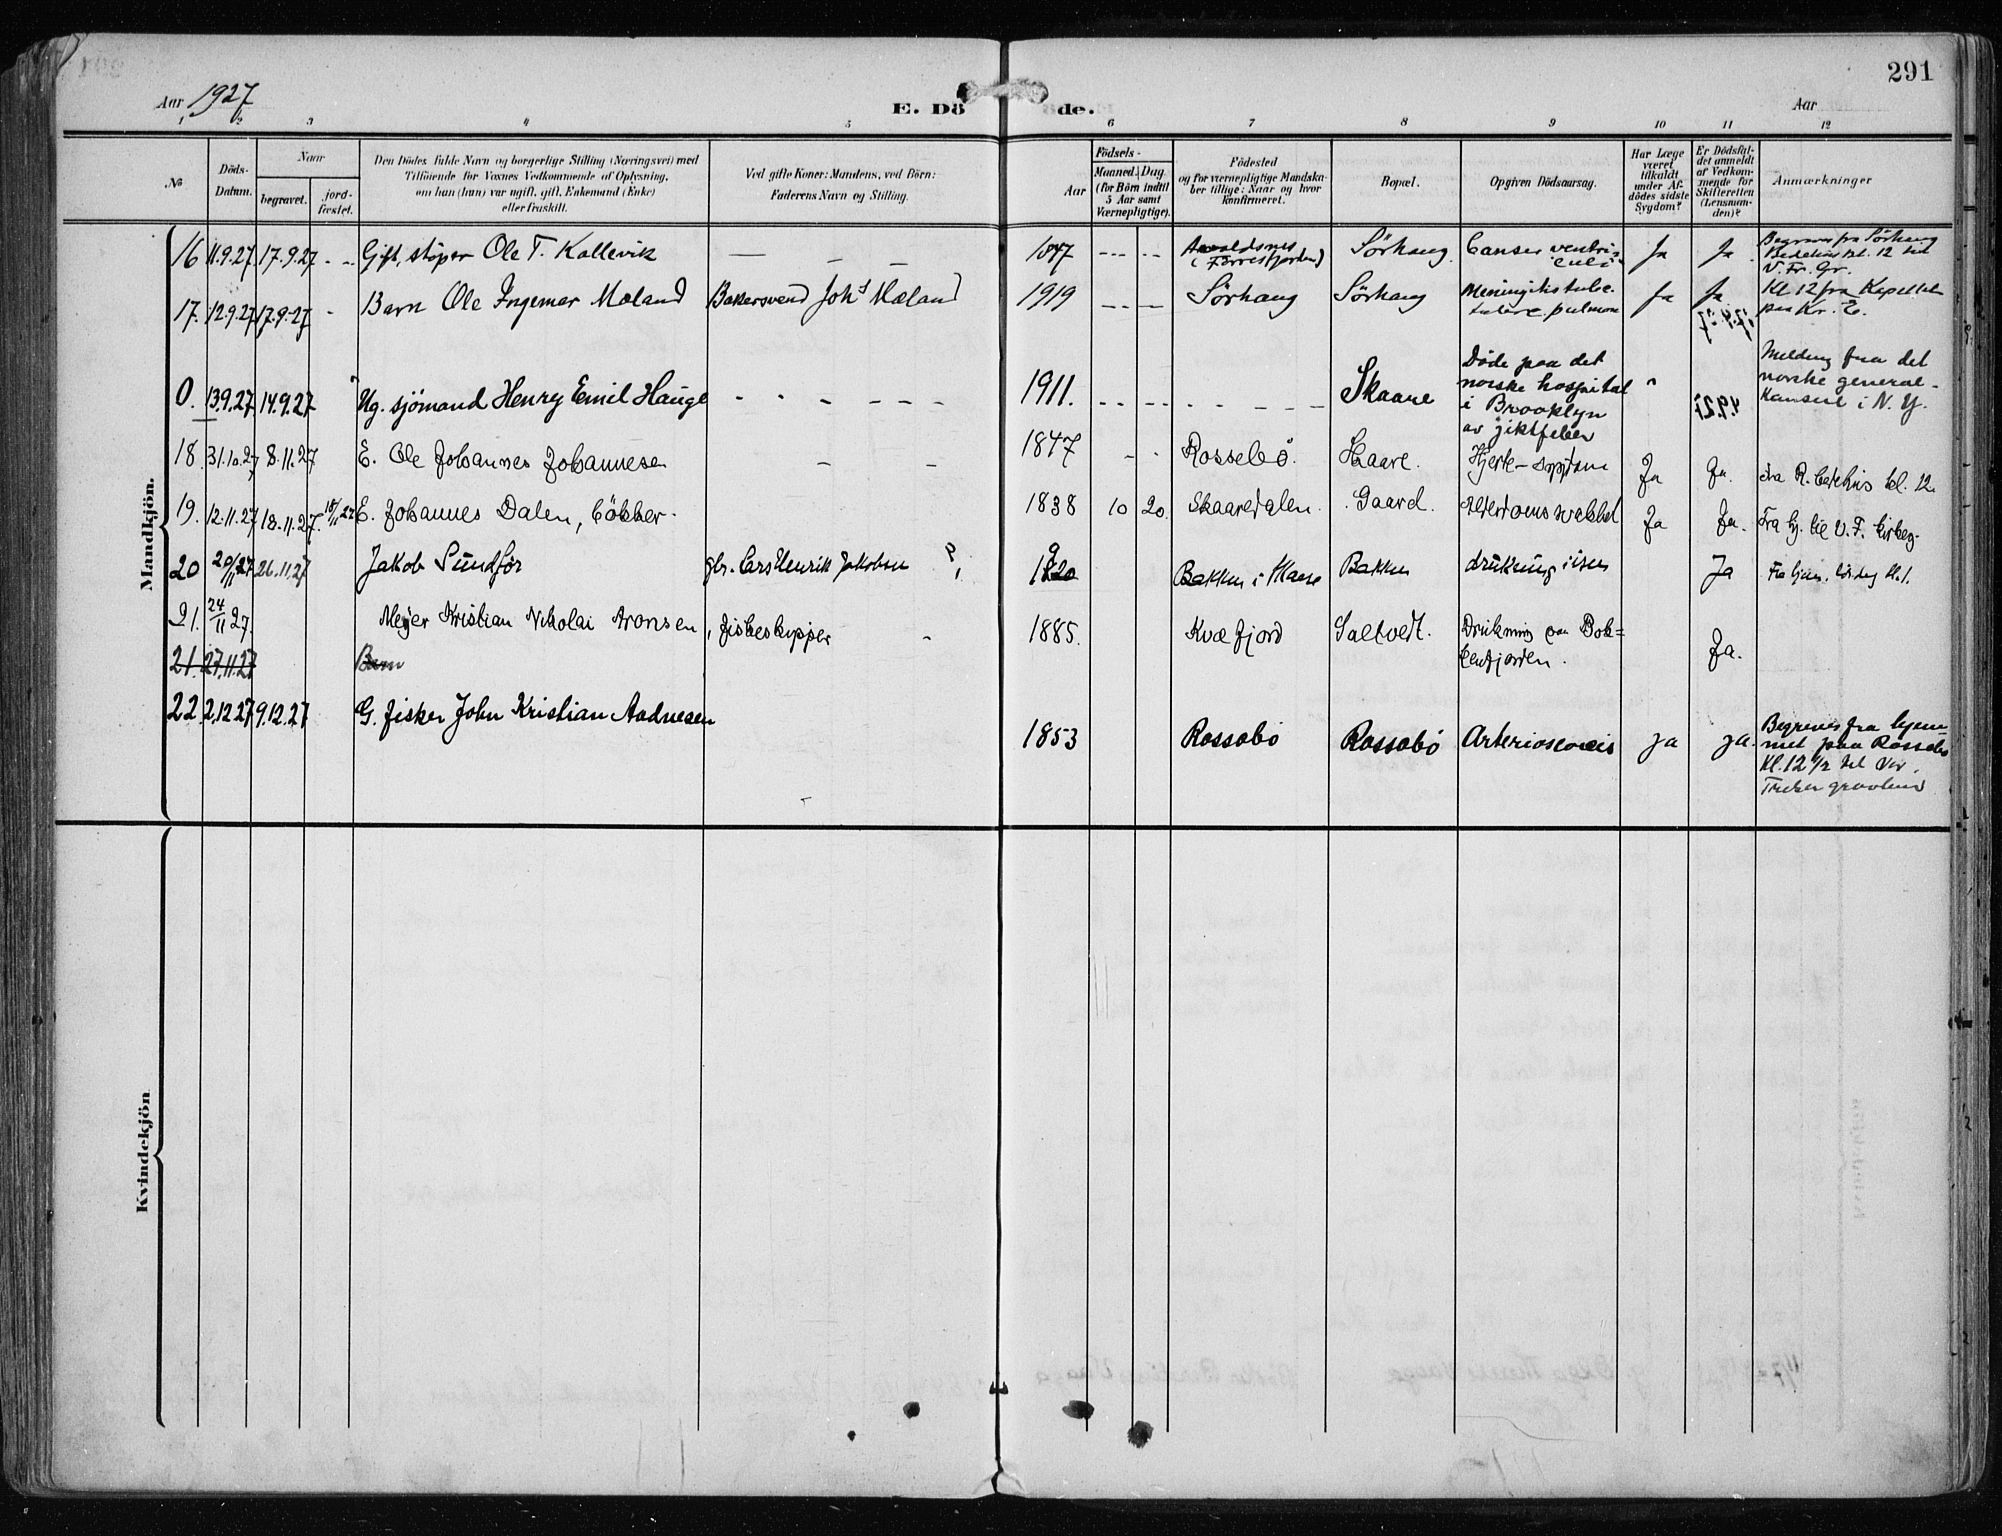 291
Aar 1927
E. Döde.
Aar
1 2 3 4 5 6 7 8 9 10 11 12
No
Döds-Datum.
Naar
begravet.
jord-fæstet.
Den Dödes fulde Navn og borgerlige Stilling (Næringsvei) med
Tilföiende for Voxnes Vedkommende af Oplysning,
om han (hun) var ugift, gift, Enkemand (Enke)
eller fraskilt.
Ved gifte Koner: Mandens, ved Börn:
Faderens Navn og Stilling.
Födsels-
Aar
Maaned. Dag
(for Börn indtil
5 Aar samt
Værnepligtige).
Födested
og for værnepligtige Mandska-
ber tillige: Naar og hvor
konfirmeret.
Bopæl.
Opgiven Dödsaarsag.
Har Læge
været
tilkaldt
under Af-
dödes sidste
Sygdom?
Er Dödsfal-
det anmeldt
af Vedkom-
mende for
Skifteretten
(Lensman-
den)?
Anmærkninger
Mandkjön.
16 11.9.27 17.9.27 - - Gift, støper Ole T. Kallevik — — — 1847 --- -- Avaldsnes (i Førresfjorden) Sörhaug Cancer ventriculi Ja Ja Begraves fra Sörhaug Bedehus kl. 12 til V. Fr. Gr.
17. 12.9.27 17.9.27 - Barn Ole Ingemar Mæland Bakersvend Johs Mæland 1919 --- -- Sörhaug Sörhaug Meningitis tube. tuberc. pulmon Ja Ja 17.9.27 Kl 12 fra Kapellet paa Kr. E.
0. 13.9.27 14.9.27 " Ug. sjömand Henry Emil Hauge - - - - - - 1911. Skaare Döde paa det norske hospital i Brooklyn av giktfeber " Melding fra det norske general-konsul i N. Y.
18. 31.10.27 8.11.27 E. Ole Johannes Johannesen - - 1847 - - Rossebö. Skaare. Hjerte- Ja Ja. Fra R. bedehus kl. 12.
19. 12.11.27 18.11.27. 18/11 27 E. Johannes Dalen, Bökker - 1838 10 20. Skaaredalen. Gaard. Alderdomssvakhet Ja Ja.
20 20/11 27 26.11.27 Jakob Sundför gbr. Lars Henrik Jakobsen ?, 1920 Bakken i Skaare Bakken drukning i isen Ja Fra hjem. lördag kl. 1.
21. 24/11 27. Meyer Kristian Nikolai Aronsen, fiskeskipper - 1885. Kvæfjord Saltvedt. Drukning paa Bok=
kenfjorden. Ja.
21. 27.11.27 Barn
22. 2.12.27 9.12.27 G. fisker John Kristian Aadnesen 1853 Rossabö Rossabö Ja Ja. Begraves fra hjem=
met paa Rossabö
Kl. 12 1/2 til Vor
Frelser gravlund
Kvindekjön